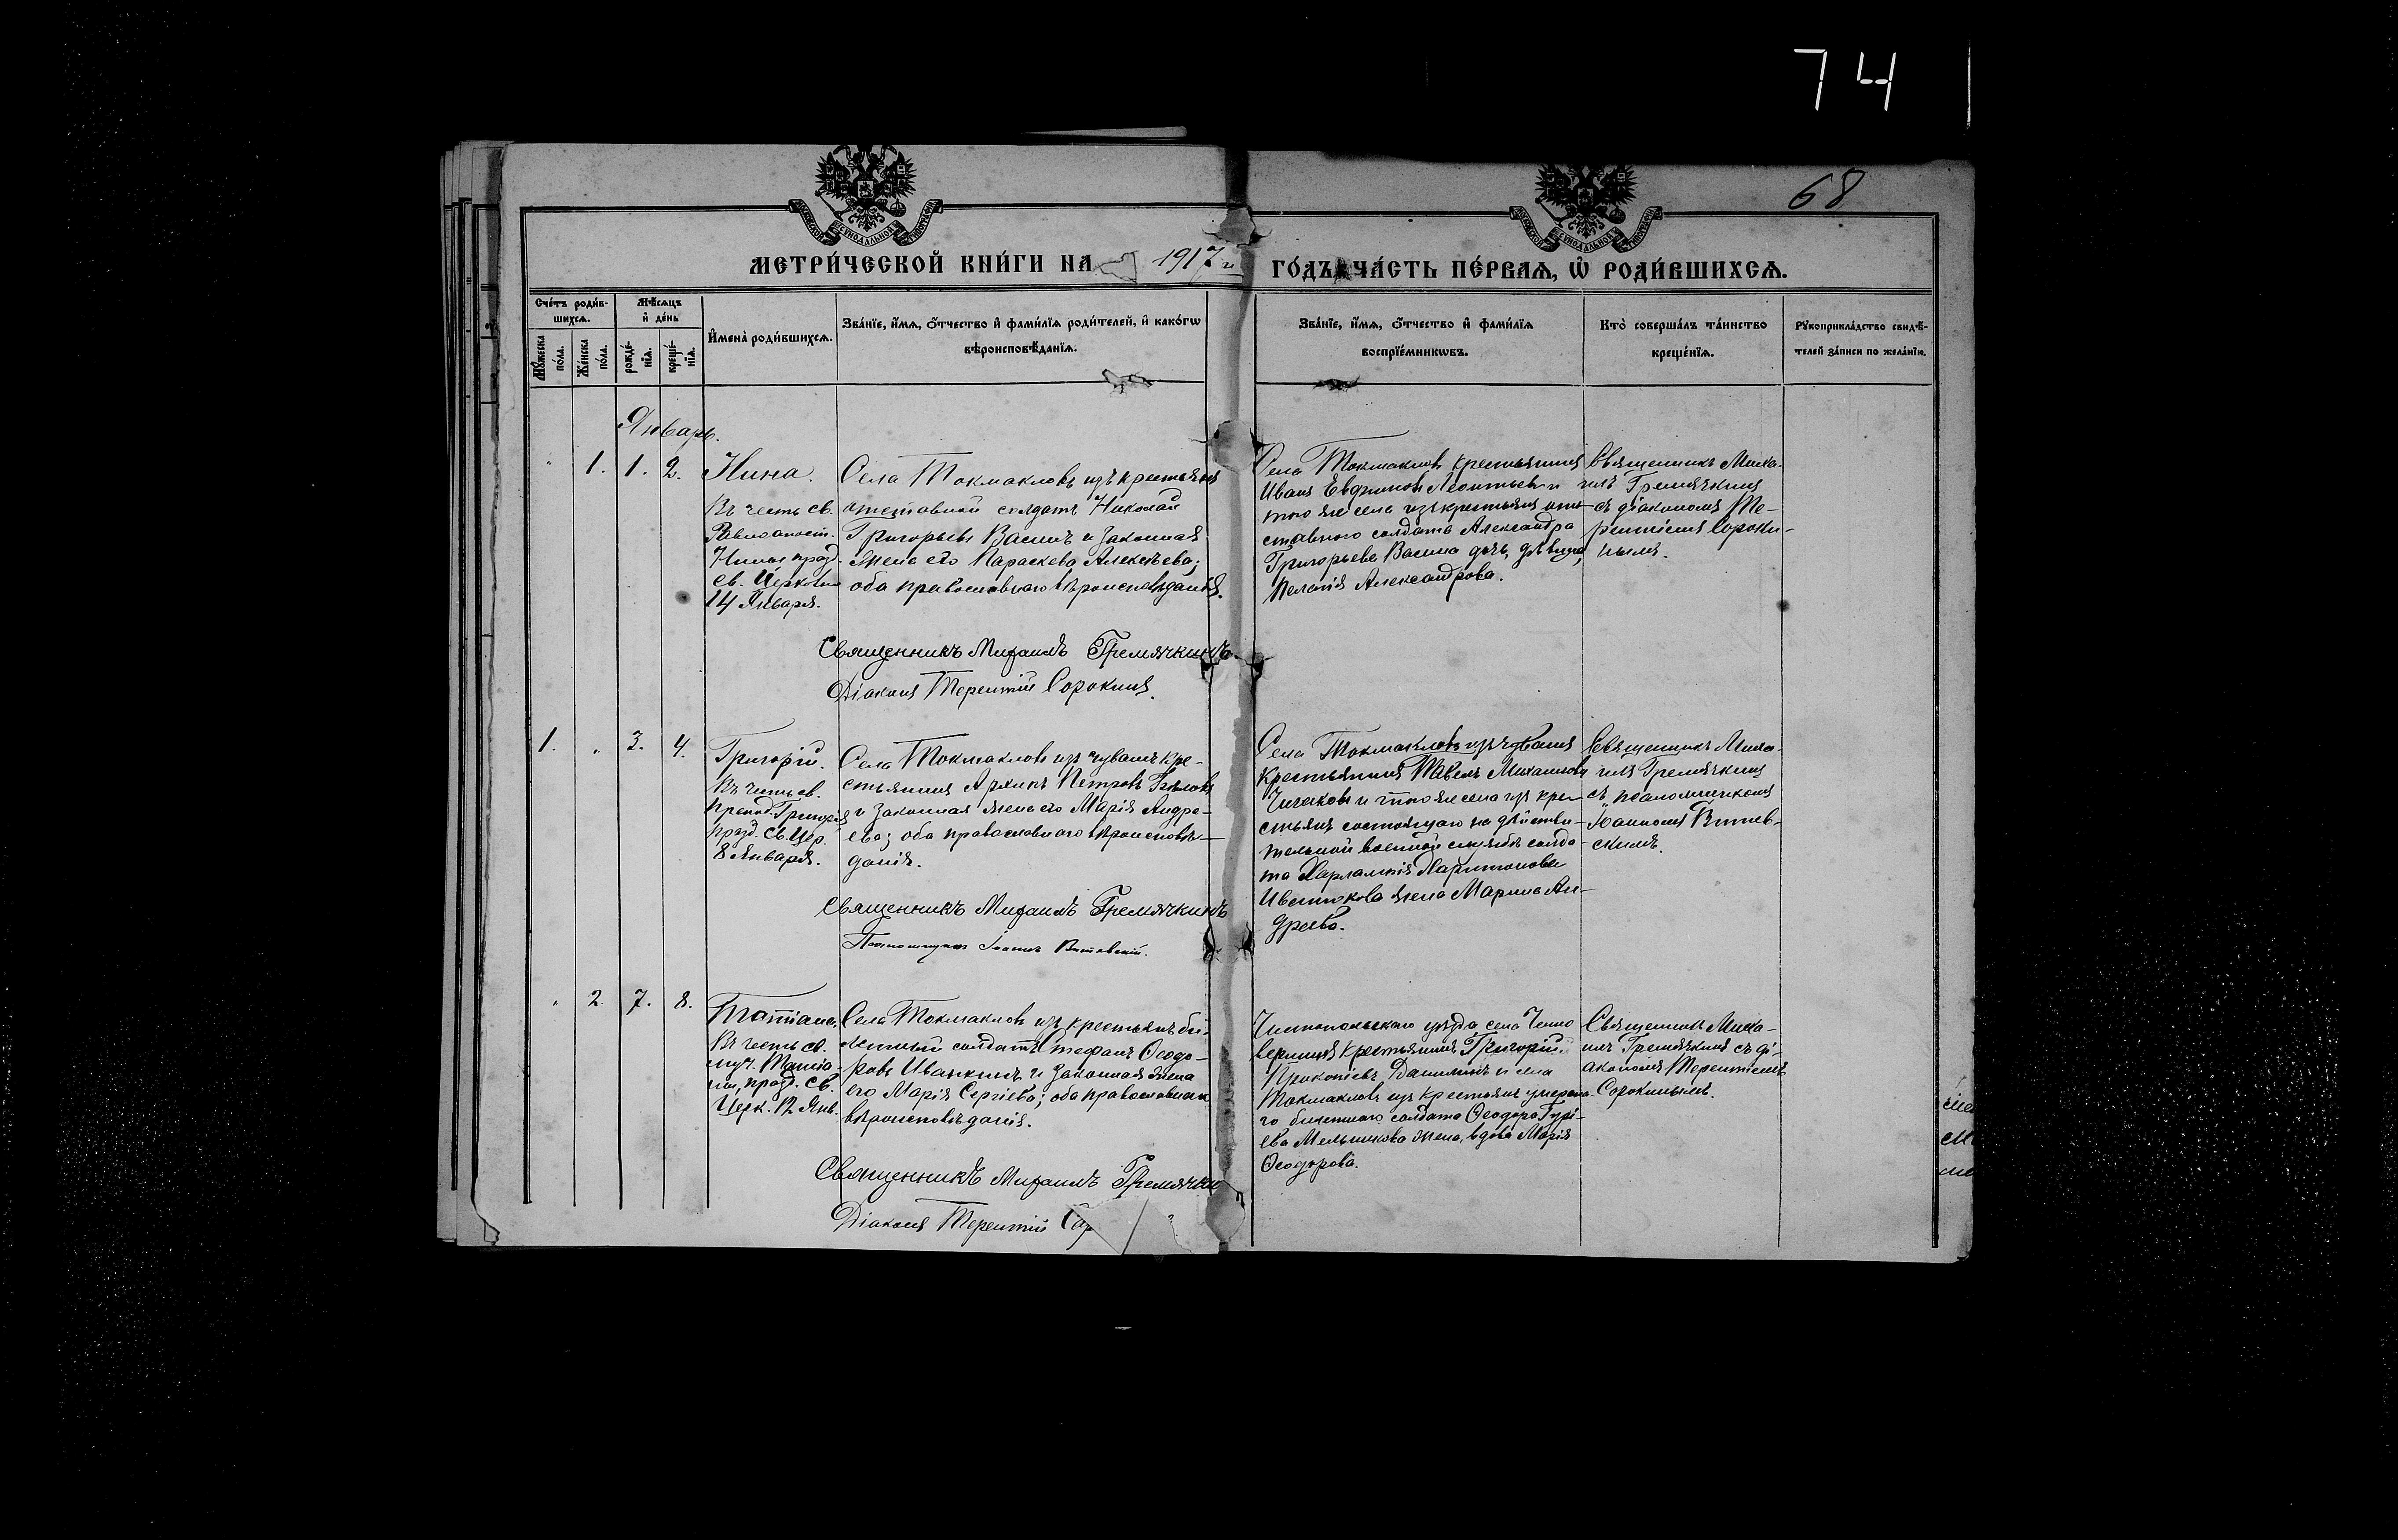 74
68
МЕТРИ́ЧЕСКОЙ КНИ́ГИ НА 1917 й ГО́ДЪ ЧА́СТЬ ПЕ́РВАѦ, Ѡ҆ РОДИ́ВШИХСѦ.
Сче́тъ роди́в-
шихсѧ.
Мѣ́сѧцъ
и҆ де́нь
Мꙋ́жеска
по́ла.
Же́нска
по́ла.
рожде́-
нїѧ.
креще́-
нїѧ.
И҆мена̀ роди́вшихсѧ.
Зва́нїе, и҆́мѧ, ѻ҆́тчество и҆ фами́лїѧ роди́телей, и҆ како́гѡ
вѣроисповѣ́данїѧ.
Зва́нїе, и҆́мѧ, ѻ҆́тчество и҆ фами́лїѧ
воспрїе́мникѡвъ.
Кто̀ соверша́лъ та́инство
креще́нїѧ.
Рꙋкоприкла́дство свидѣ́-
телей за́писи по жела́нїю.
Январь.
" 1. 1. 2.
Нина.
Въ честь св.
Равноапост.
Нины празд.
св. Церковью
14 Января.
Села Токмакловъ изъ крестьянъ
отставной солдатъ Николай
Григорьевъ Васинъ и законная
жена его Параскева Алексѣева;
оба православнаго вѣроисповѣданія.
Священникъ Михаилъ Гремячкинъ
Діаконъ Терентій Сорокинъ.
Села Токмакловъ крестьянинъ
Иванъ Евфимовъ Леонтьевъ и
того же села изъ крестьянъ от-
ставного солдата Александра
Григорьева Васина дочь, дѣвица,
Пелагія Александрова.
Священникъ Миха-
илъ Гремячкинъ
съ діакономъ Те-
рентіемъ Сороки-
нымъ.
1. " 3. 4.
Григорій.
Въ честь св.
препод. Григорія
празд. св. Цер.
8 Января.
Села Токмакловъ изъ чувашъ кре-
стьянинъ Петровъ
и законная жена его Марія Андре-
ева; оба православнаго вѣроисповѣ-
данія.
Священникъ Михаилъ Гремячкинъ
Псаломщикъ Іоаннъ Витевскій.
Села Токмакловъ изъ чувашъ
крестьянинъ Павелъ Михаиловъ
и того же села изъ кре-
стьянъ состоящаго на дѣйстви-
тельной военной службѣ солда-
та Харлампія Харитонова
Цвѣткова жена Марина Ан-
дреева.
Священникъ Миха-
илъ Гремячкинъ
съ псаломщикомъ
Іоанномъ Витев-
скимъ.
" 2. 7. 8.
Татіана.
Въ честь св.
муч. Татіа-
ны, празд. св.
Церк. 12 Янв.
Села Токмакловъ изъ крестьянъ би-
летный солдатъ Стефанъ Ѳеодо-
ровъ Иванкинъ и законная жена
его Марія Сергіева; оба православнаго
вѣроисповѣданія.
Священникъ Михаилъ Гремячкин
Діаконъ Терентій Сор
Чистопольскаго уѣзда села
крестьянинъ Григорій
Прокопіевъ Данилинъ и села
Токмакловъ изъ крестьянъ умерша-
го билетнаго солдата Ѳеодора Гурі-
ева Мельникова жена, вдова Марія
Ѳеодорова.
Священникъ Миха-
илъ Гремячкинъ съ ді-
акономъ Терентіемъ
Сорокинымъ.